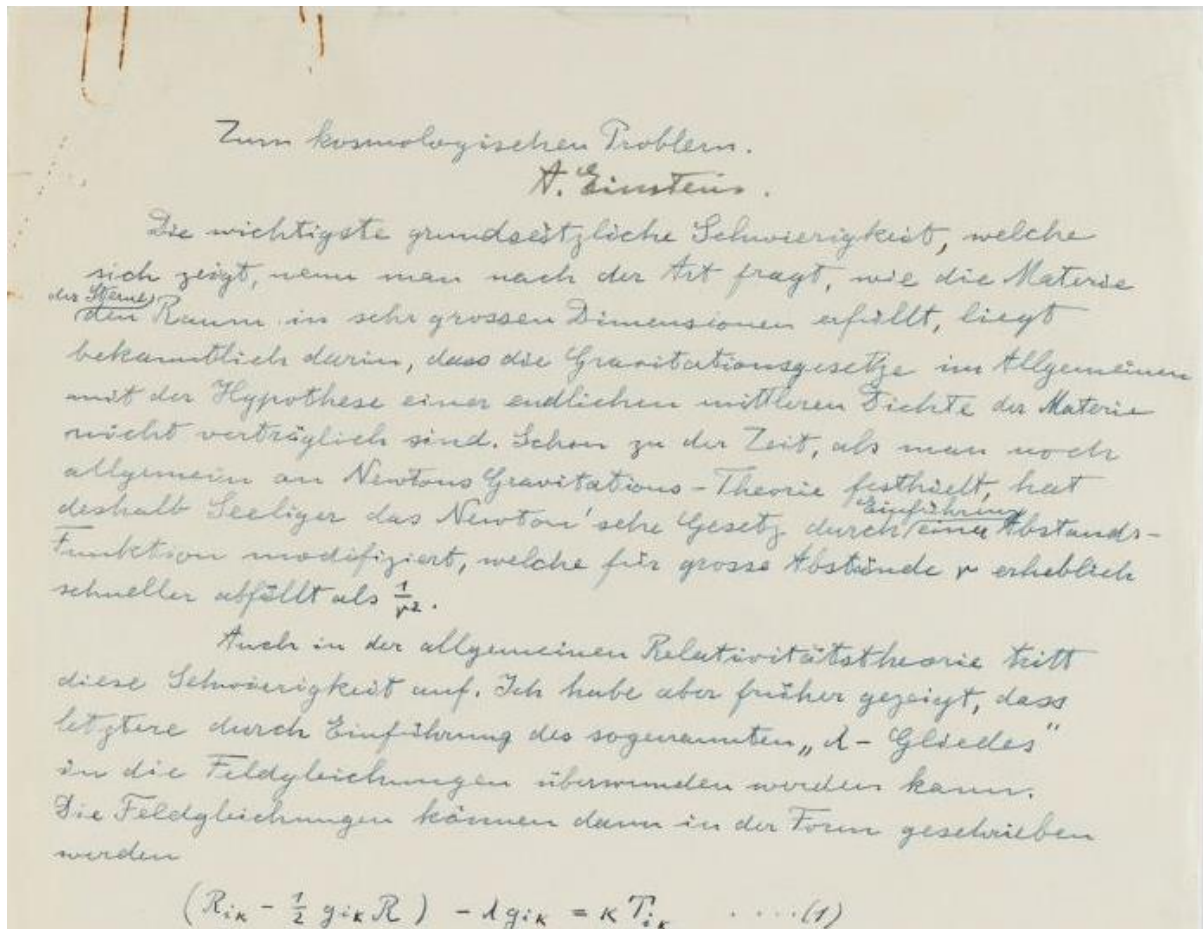 Zum kosmologischen Problem.
A. Einstein.
Die wichtigste grundsätzliche Schwierigkeit, welche
sich zeigt, wenn man nach der Art fragt, wie die Materie
der Sterne
den Raum in sehr grossen Dimensionen erfüllt, liegt
bekanntlich darin, dass die Gravitationsgesetze im Allgemeinen
mit der Hypothese einer endlichen mittleren Dichte der Materie
nicht verträglich sind. Schon zu der Zeit, als man noch
allgemein an Newtons Gravitations-Theorie festhielt, hat
Einführung
deshalb Seeliger das Newton'sche Gesetz durch einer Abstands-
Funktion modifiziert, welche für grosse Abstände r erheblich
schneller abfällt als 1/r².
Auch in der allgemeinen Relativitätstheorie tritt
diese Schwierigkeit auf. Ich habe aber früher gezeigt, dass
letztere durch Einführung des sogenannten „λ-Gliedes"
in die Feldgleichungen überwunden werden kann.
Die Feldgleichungen können dann in der Form geschrieben
werden
(R_ik - 1/2 g_ik R) - λg_ik = κ T_ik ....(1)